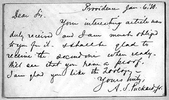 Providence Jan 6. '81.
Dear Sir,
Your interesting article was
duly received and I am much obliged
to you for it. I shall be glad to
receive the second one when ready.
Will see that you have a proof.
I am glad you like the Zoology.
Yours truly,
A. S. Packard Jr.